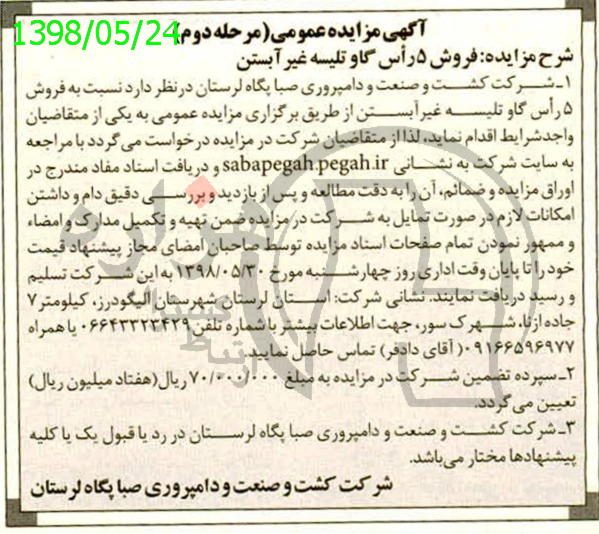 آگهی مزایده عمومی (مرحله دوم)
1398/05/24
شرح مزایده: فروش ۵ رأس گاو تلیسه غیر آبستن
۱ـ شرکت کشت و صنعت و دامپروری صبا پگاه لرستان درنظر دارد نسبت به فروش
۵ رأس گاو تلیسه غیرآبستن از طریق برگزاری مزایده عمومی به یکی از متقاضیان
واجدشرایط اقدام نماید، لذا از متقاضیان شرکت در مزایده درخواست می گردد با مراجعه
به سایت شرکت به نشانی sabapegah.pegah.ir و دریافت اسناد مفاد مندرج در
اوراق مزایده و ضمائم، آن را به دقت مطالعه و پس از بازدید و بررسی دقیق دام و داشتن
امکانات لازم در صورت تمایل به شرکت در مزایده ضمن تهیه و تکمیل مدارک و امضاء
و ممهور نمودن تمام صفحات اسناد مزایده توسط صاحبان امضای مجاز پیشنهاد قیمت
خود را تا پایان وقت اداری روز چهارشنبه مورخ ۱۳۹۸/۰۵/۳۰ به این شرکت تسلیم
و رسید دریافت نمایند. نشانی شرکت: استان لرستان شهرستان الیگودرز، کیلومتر ۷
جاده ازنا، شهرک سور، جهت اطلاعات بیشتر با شماره تلفن ۰۶۶۴۳۳۲۳۴۲۹ یا همراه
۰۹۱۶۶۵۹۶۹۷۷( آقای دادفر) تماس حاصل نمایید.
۲ـ سپرده تضمین شرکت در مزایده به مبلغ ۷۰/۰۰۰/۰۰۰ ریال (هفتاد میلیون ریال)
تعیین می گردد.
۳ـ شرکت کشت و صنعت و دامپروری صبا پگاه لرستان در رد یا قبول یک یا کلیه
پیشنهادها مختار می‌باشد.
شرکت کشت و صنعت و دامپروری صبا پگاه لرستان